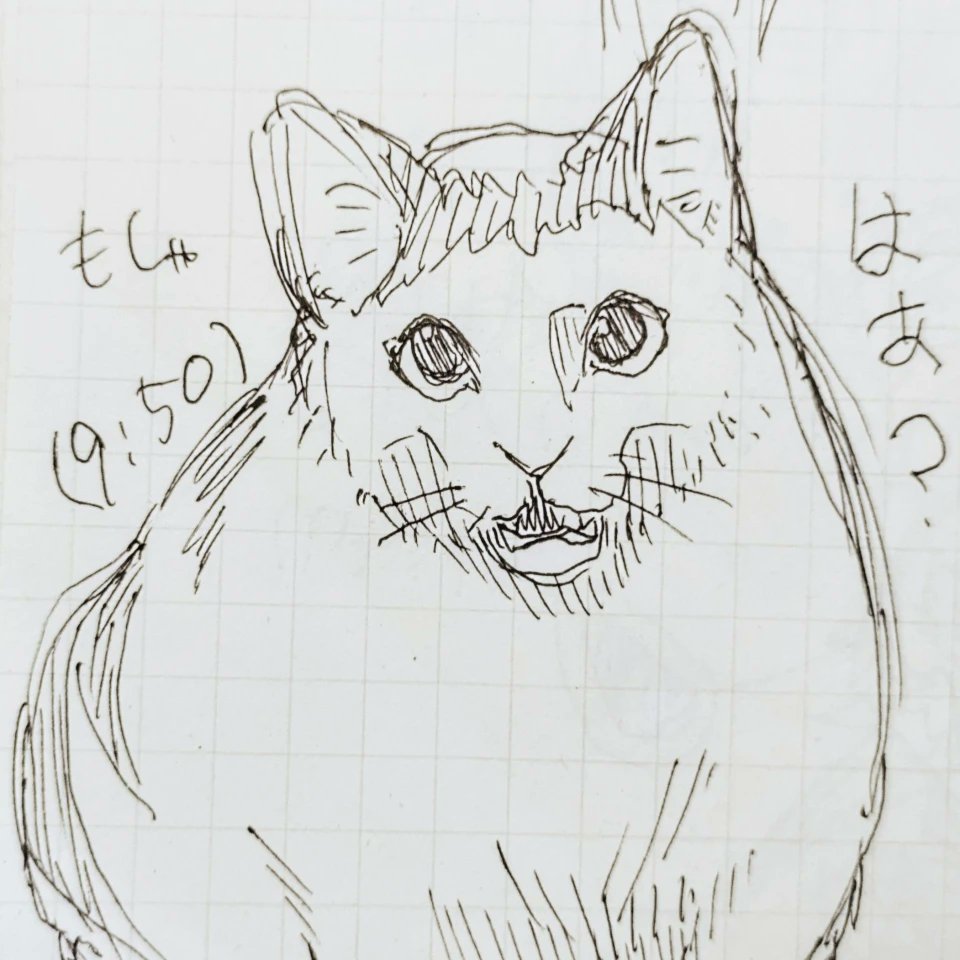 はあ?
もしゃ
(9:50)